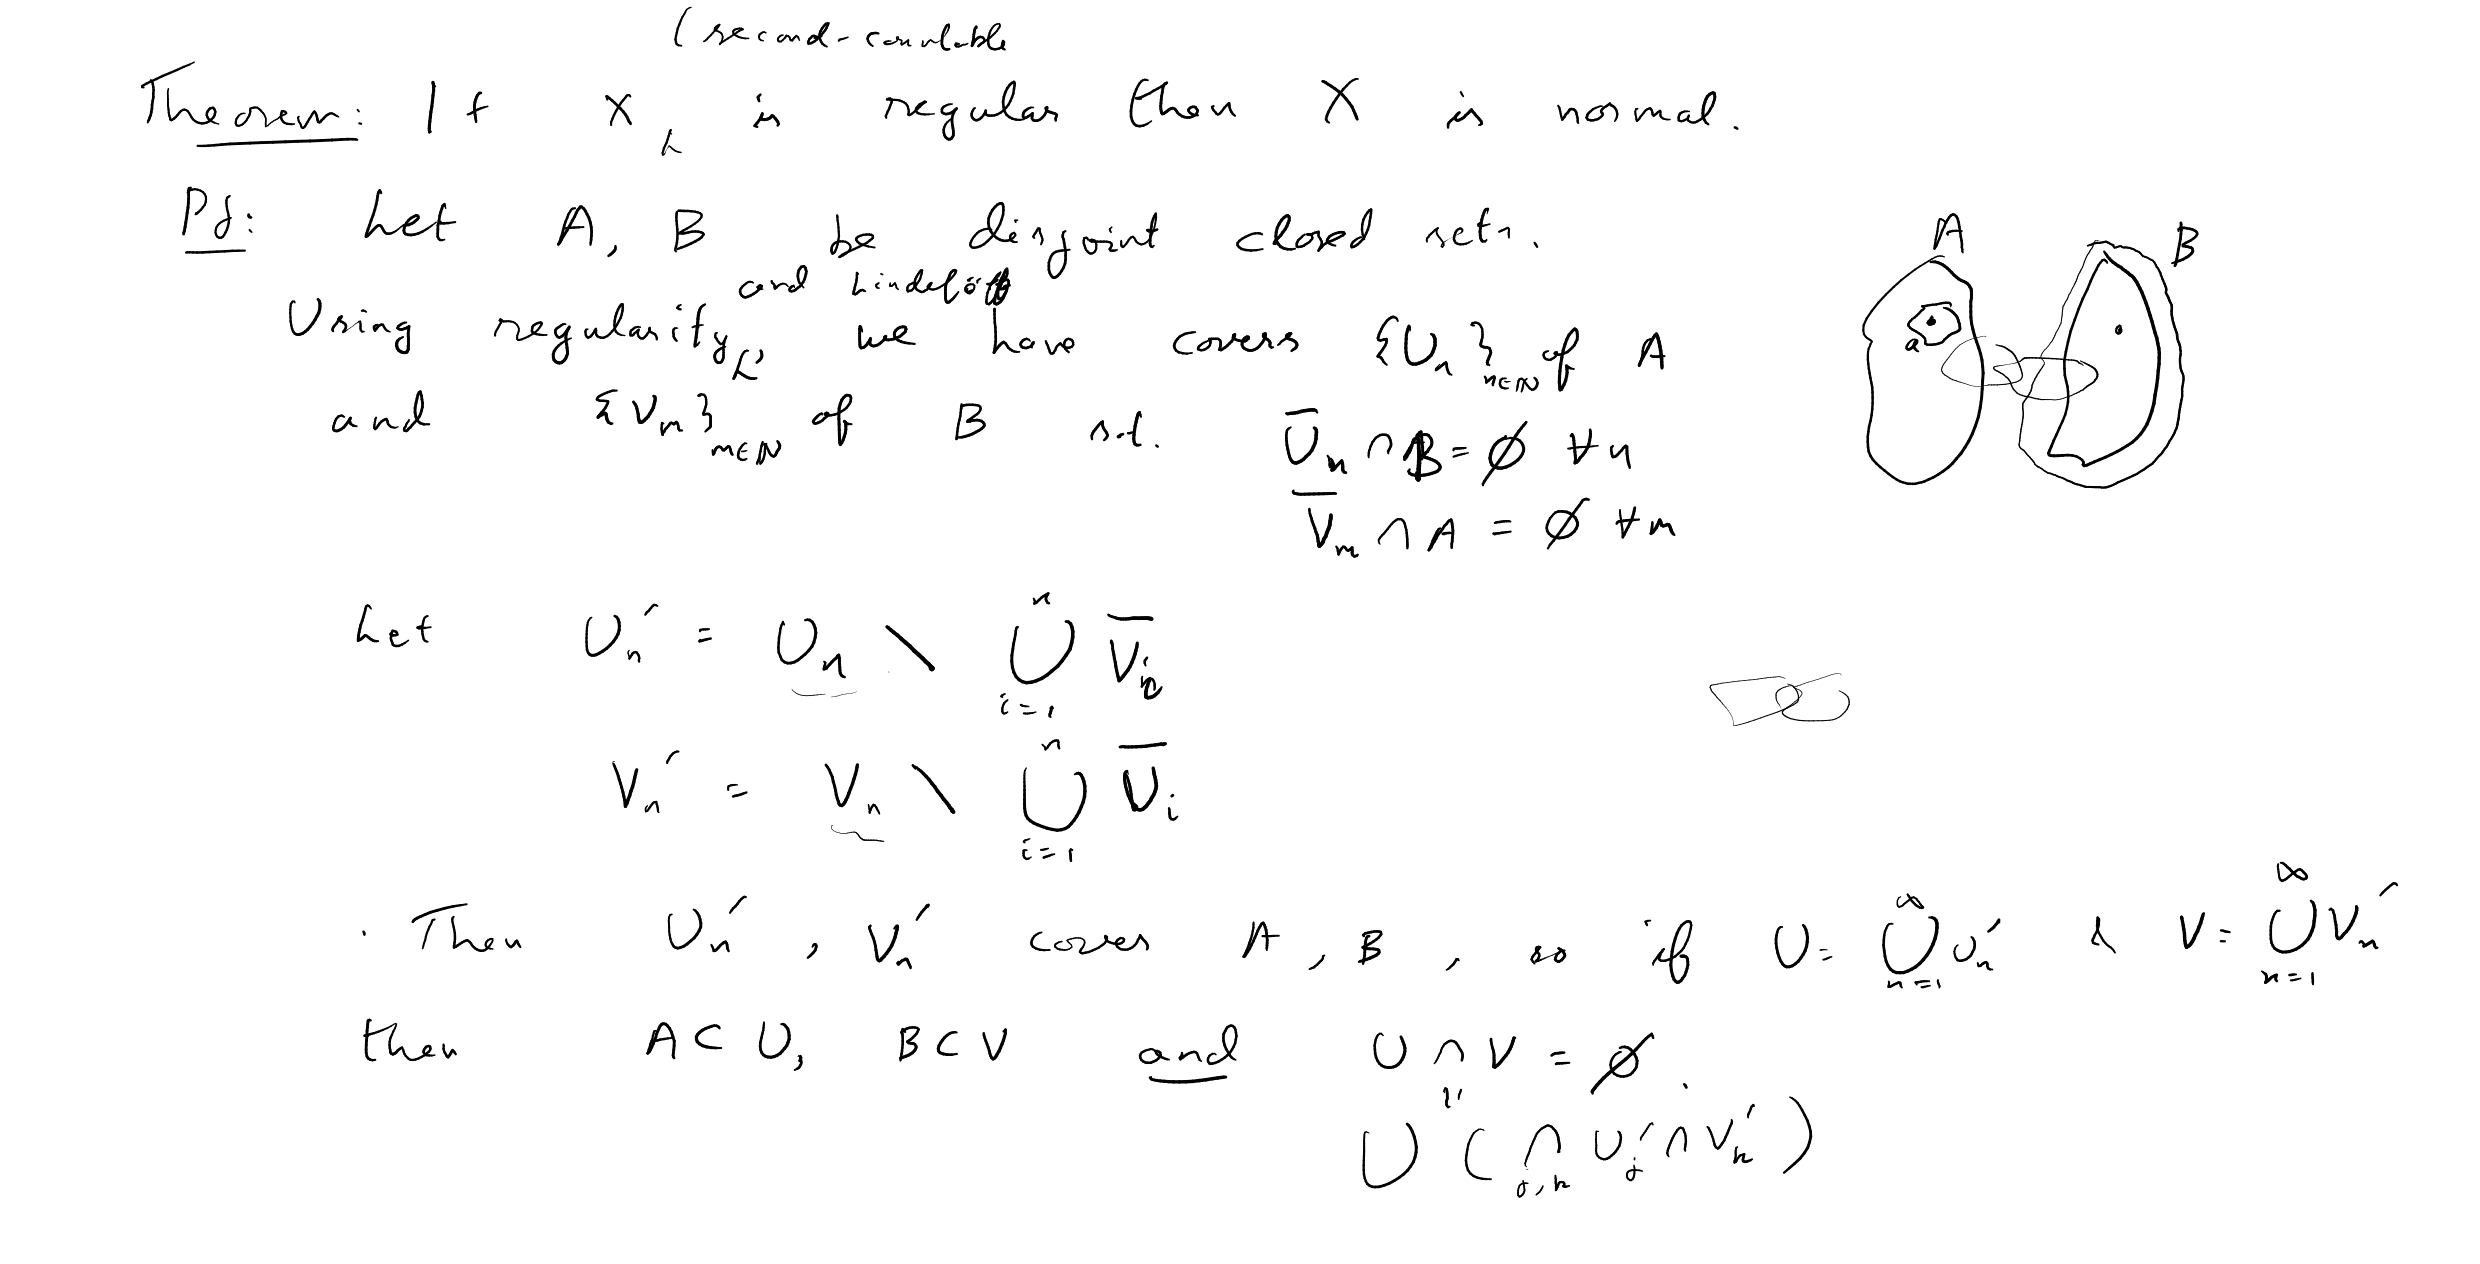 (second-countable
Theorem: If X is regular then X is normal.
Pf: Let A, B be disjoint closed sets.
and Lindelöf
Using regularity, we have covers {U_n}_{n∈N} of A
and {V_m}_{m∈N} of B s.t. U̅_n ∩ B = ∅ ∀n
V̅_m ∩ A = ∅ ∀m
A B
a
Let U_n′ = U_n \ ⋃_{i=1}^{n} V̅_i
V_n′ = V_n \ ⋃_{i=1}^{n} U̅_i
Then U_n′, V_n′ cover A, B, so if U = ⋃_{n=1}^{∞} U_n′ & V = ⋃_{n=1}^{∞} V_n′
then A ⊂ U, B ⊂ V and U ∩ V = ∅.
"
⋃ (⋂_{j,k} U_j′ ∩ V_k′)